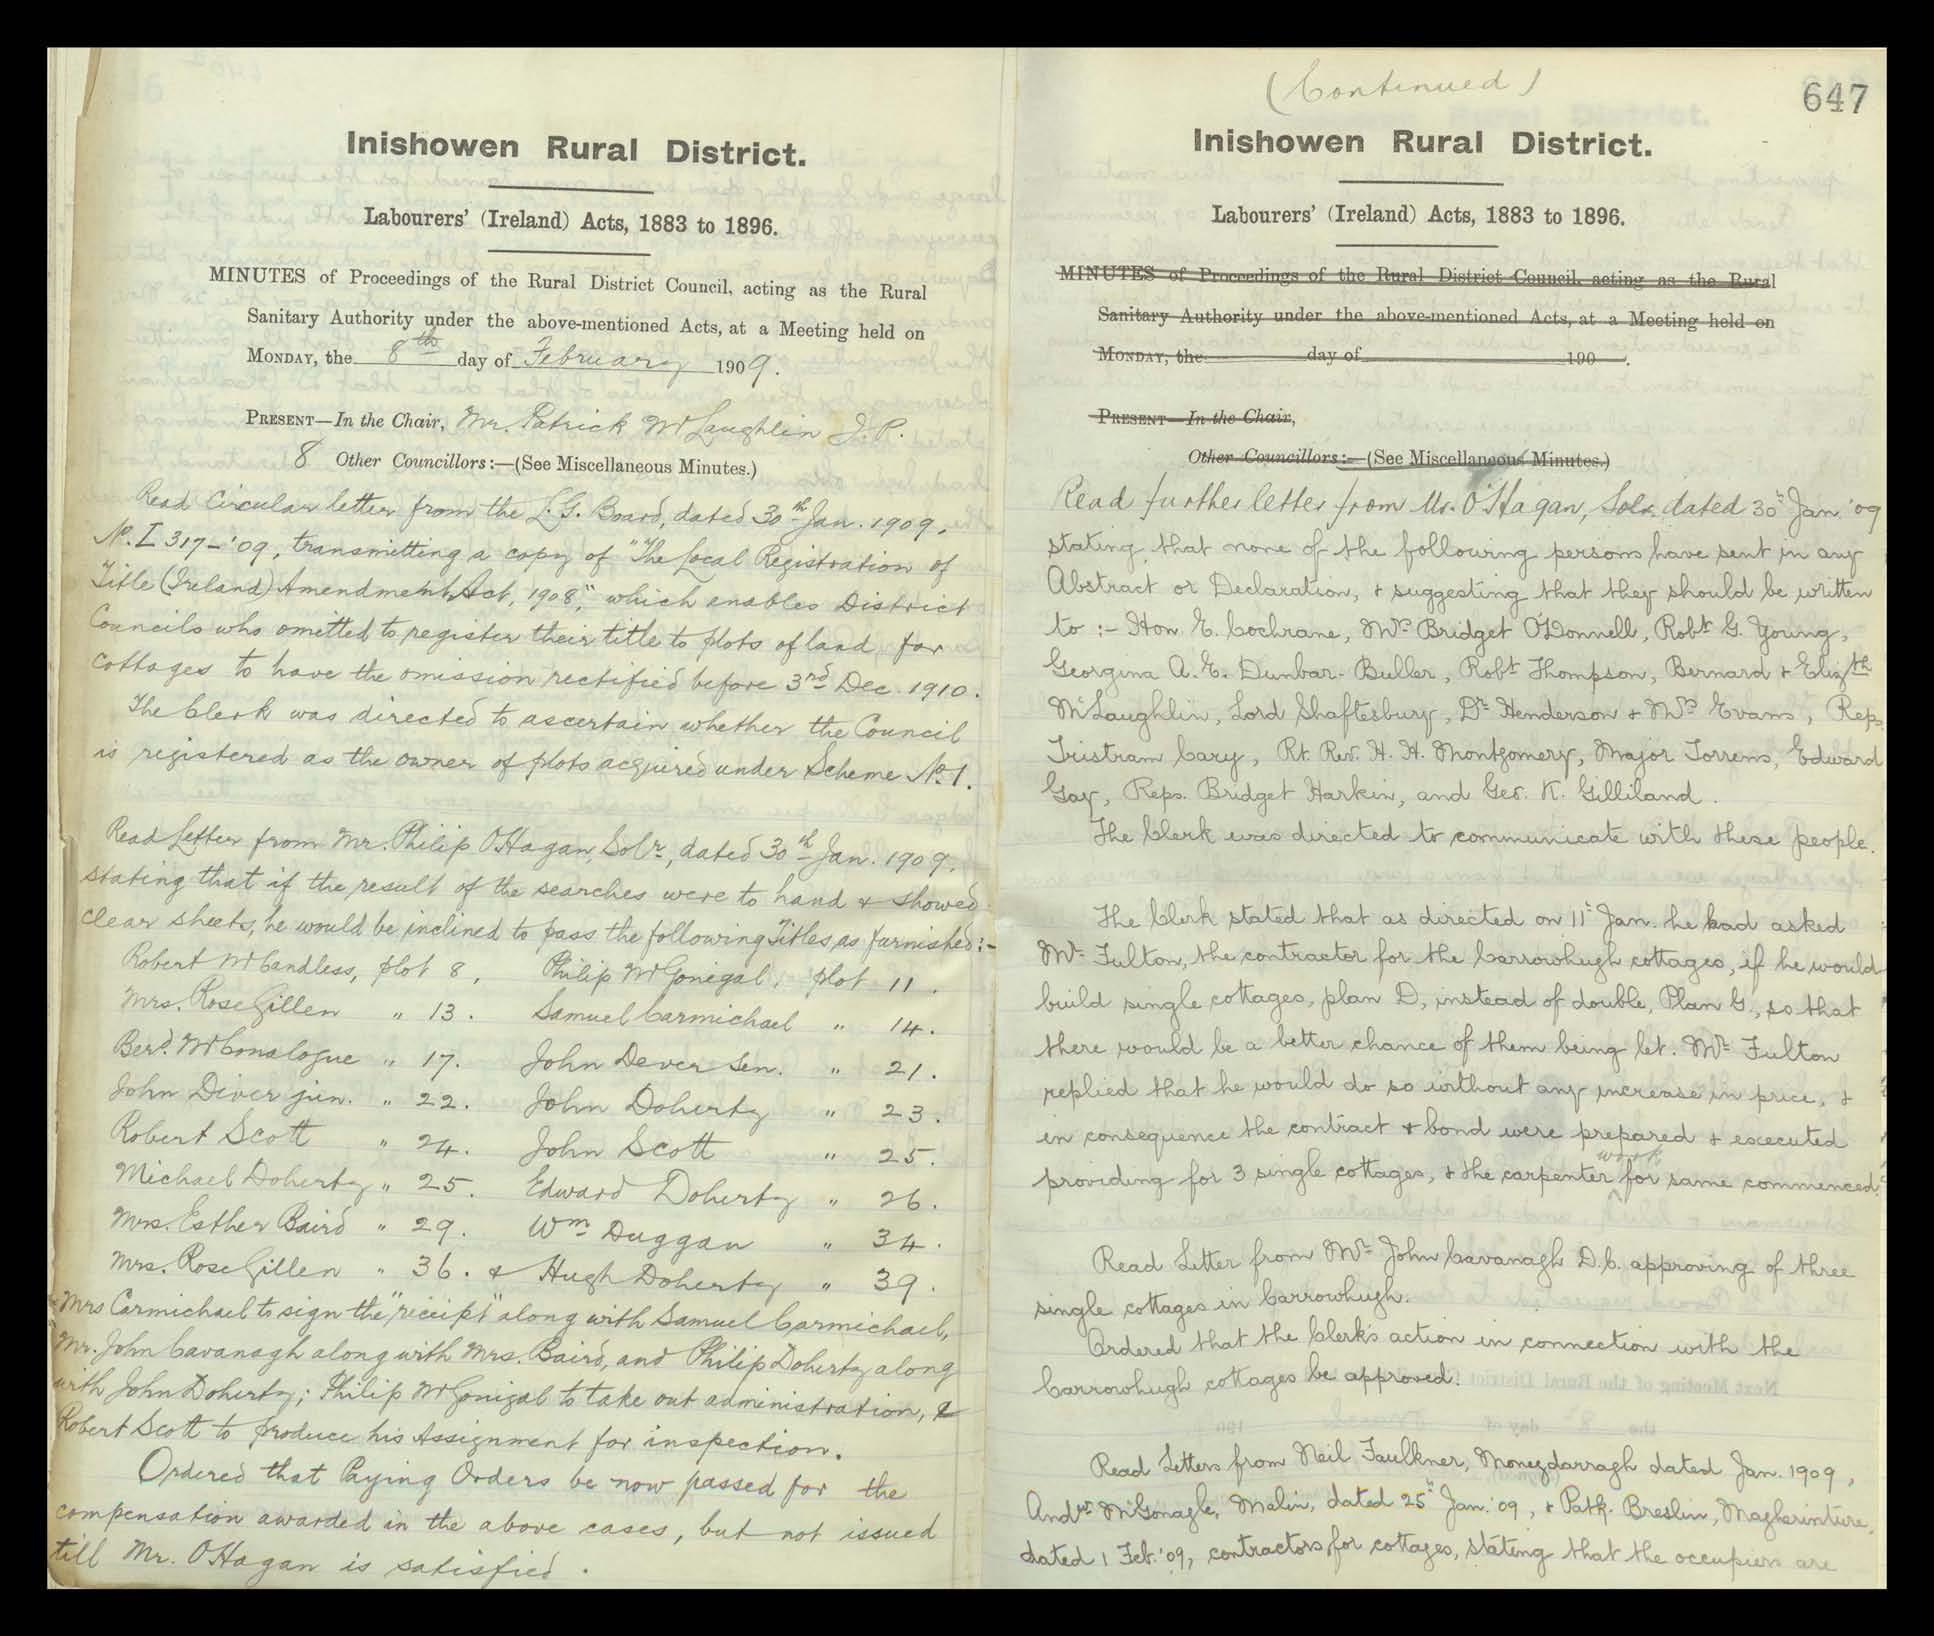 Inishowen Rural District.
Labourers' (Ireland) Acts, 1883 to 1896.
MINUTES of Proceedings of the Rural District Council, acting as the Rural
Sanitary Authority under the above-mentioned Acts, at a Meeting held on
MONDAY, the 8th day of February 1909.
PRESENT—In the Chair, Mr. Patrick McLaughlin J.P.
8 Other Councillors:—(See Miscellaneous Minutes.)
Read Circular letter from the L.G. Board, dated 30th Jan. 1909,
No. I 317-'09, transmitting a copy of "The Local Registration of
Title (Ireland) Amendment Act, 1908," which enables District
Councils who omitted to register their title to plots of land for
cottages to have the omission rectified before 3rd Dec. 1910.
The Clerk was directed to ascertain whether the Council
is registered as the owner of plots acquired under Scheme No. 1.
Read Letter from Mr. Philip O'Hagan, Solr., dated 30th Jan. 1909,
stating that if the result of the searches were to hand & showed
clear sheets, he would be inclined to pass the following Titles as furnished:-
Robert McCandless, plot 8, Philip McGonigal, plot 11.
Mrs. Rose Gillen " 13. Samuel Carmichael " 14.
Berd. McConalogue " 17. John Dever sen. " 21.
John Diver jun. " 22. John Doherty " 23.
Robert Scott " 24. John Scott " 25.
Michael Doherty " 25. Edward Doherty " 26.
Mrs. Esther Baird " 29. Wm Duggan " 34.
Mrs. Rose Gillen " 36. & Hugh Doherty " 39.
Mrs Carmichael to sign the "receipt" along with Samuel Carmichael,
Mr. John Cavanagh along with Mrs. Baird, and Philip Doherty along
with John Doherty; Philip McGonigal to take out administration, &
Robert Scott to produce his Assignment for inspection.
Ordered that Paying Orders be now passed for the
compensation awarded in the above cases, but not issued
till Mr. O'Hagan is satisfied.
(Continued)
647
Inishowen Rural District.
Labourers' (Ireland) Acts, 1883 to 1896.
MINUTES of Proceedings of the Rural District Council, acting as the Rural
Sanitary Authority under the above-mentioned Acts, at a Meeting held on
MONDAY, the day of 190 .
PRESENT—In the Chair,
Other Councillors:—(See Miscellaneous Minutes.)
Read further letter from Mr. O'Hagan, Solr. dated 30th Jan. '09
stating that none of the following persons have sent in any
Abstract or Declaration, & suggesting that they should be written
to :- Hon. E. Cochrane, Mrs Bridget O'Donnell, Robt G. Young,
Georgina A. E. Dunbar-Buller, Robt Thompson, Bernard & Elizth
McLaughlin, Lord Shaftesbury, Dr Henderson & Mrs Evans, Reps
Tristram Cary, Rt. Rev. H. H. Montgomery, Major Torrens, Edward
Gay, Reps. Bridget Harkin, and Geo. K. Gilliland.
The Clerk was directed to communicate with these people.
The Clerk stated that as directed on 11th Jan. he had asked
Mr Fulton, the contractor for the Carrowhugh cottages, if he would
build single cottages, plan D, instead of double, Plan G, so that
there would be a better chance of them being let. Mr Fulton
replied that he would do so without any increase in price, &
in consequence the contract & bond were prepared & executed
providing for 3 single cottages, & the carpenter work for same commenced.
Read Letter from Mr John Cavanagh D.C. approving of three
single cottages in Carrowhugh.
Ordered that the Clerk's action in connection with the
Carrowhugh cottages be approved.
Read Letters from Neil Faulkner, Moneydarragh dated Jan. 1909,
Andrw McGonagle, Malin, dated 25th Jan. '09, & Patk. Breslin, Magherinture,
dated 1 Feb. '09, contractors for cottages, stating that the occupiers are